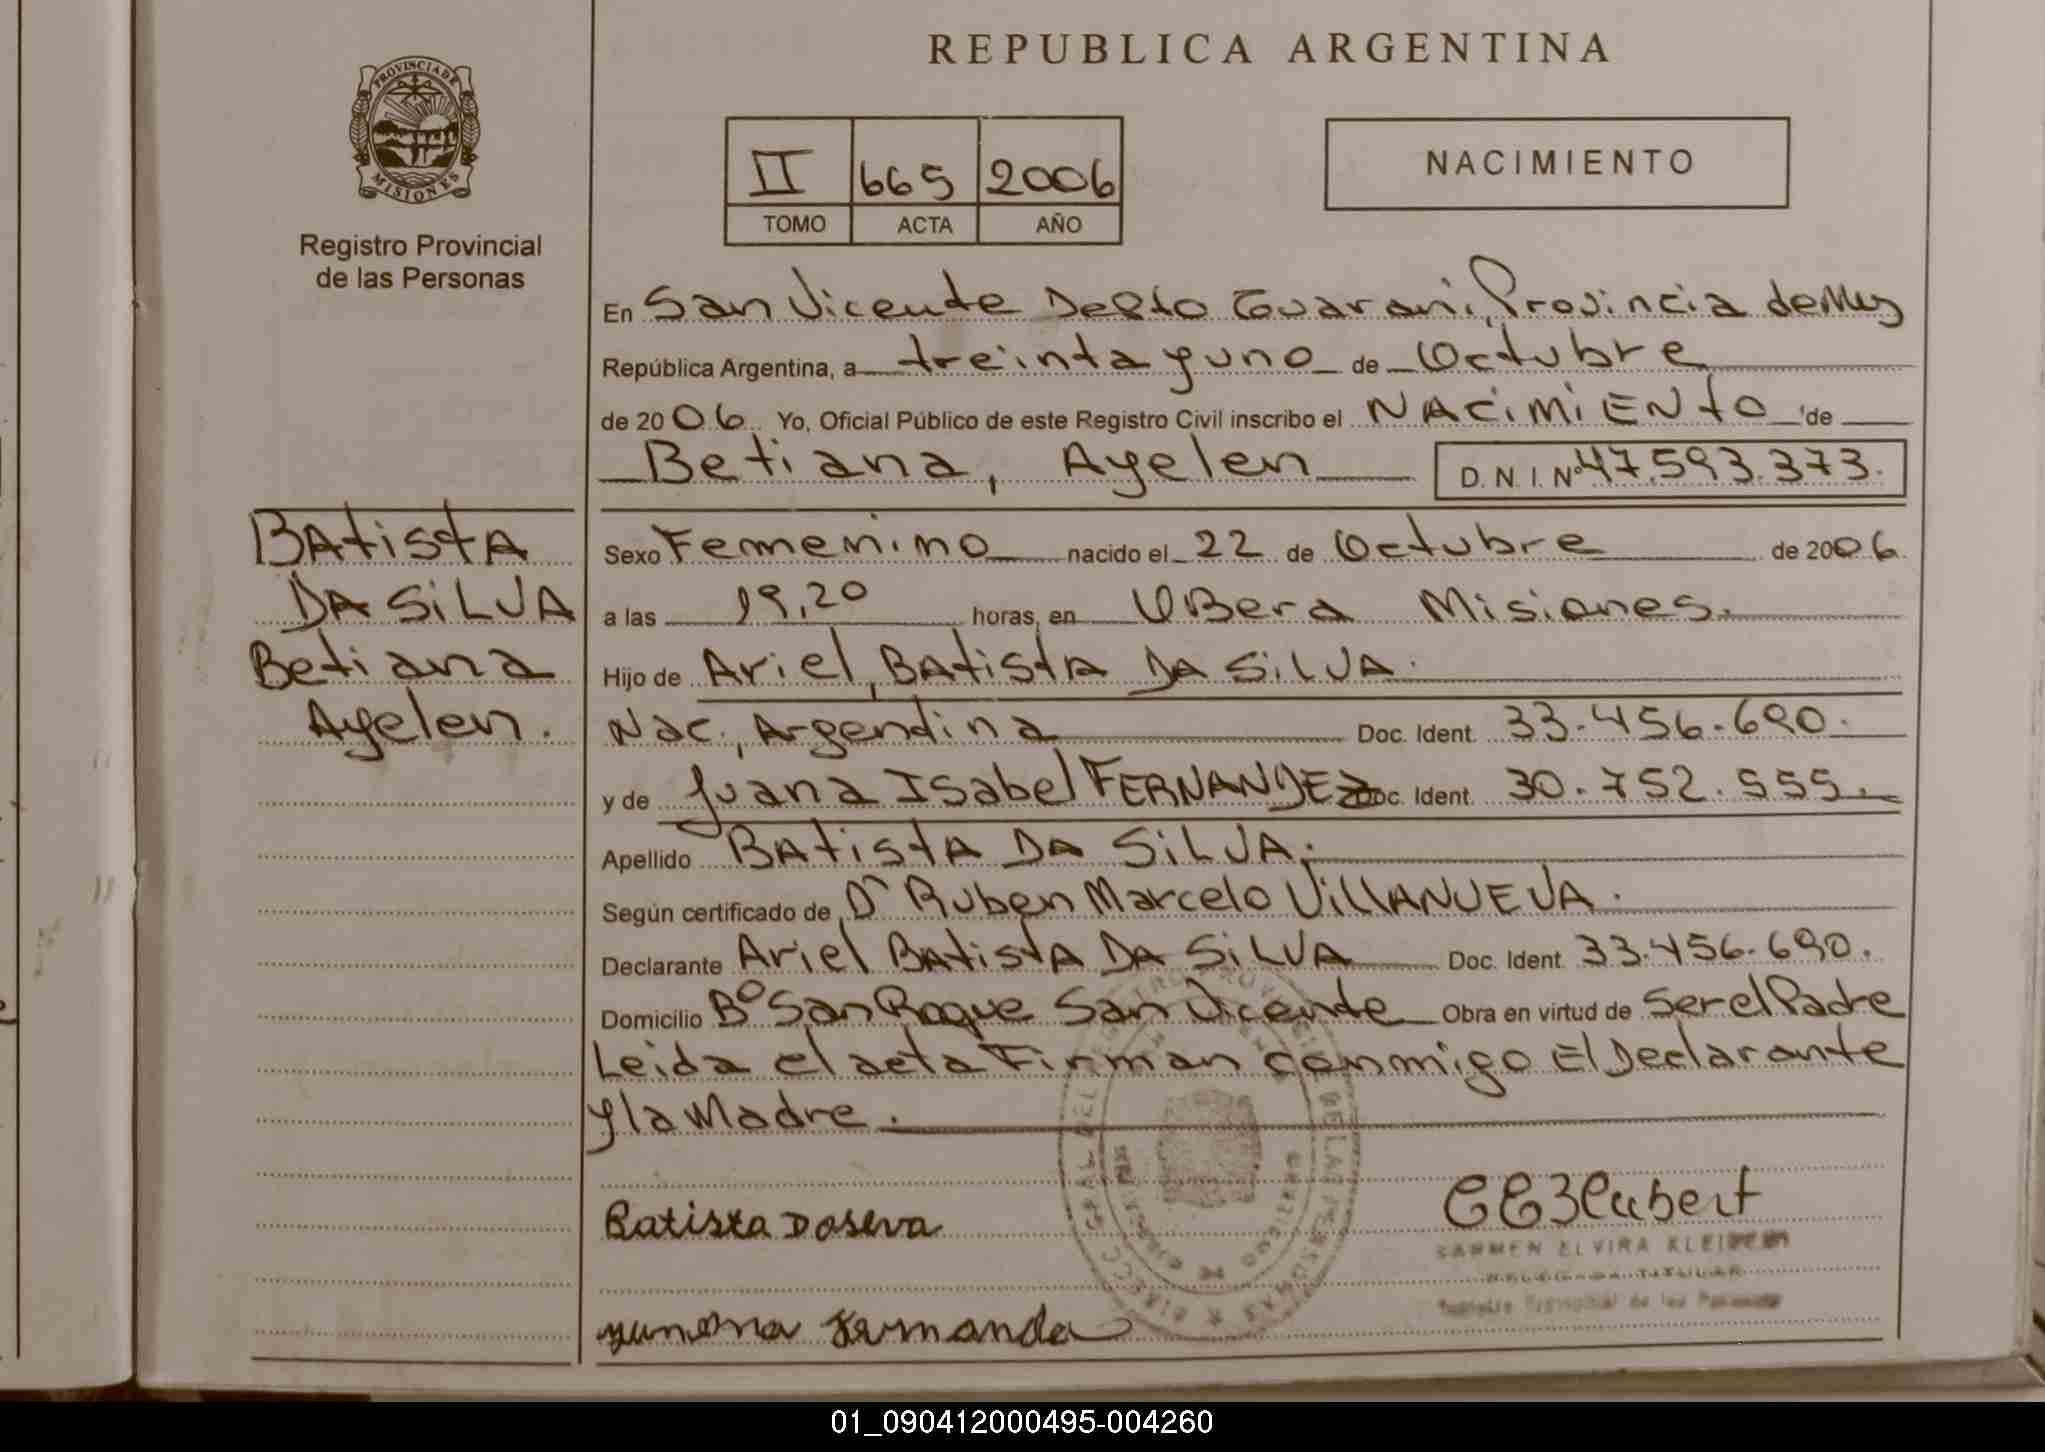 REPUBLICA ARGENTINA
PROVINCIA DE
MISIONES
Registro Provincial
de las Personas
II 665 2006
TOMO ACTA AÑO
NACIMIENTO
En San Vicente Depto Guarani, Provincia de Mnes
República Argentina, a treinta y uno de Octubre
de 2006 Yo, Oficial Público de este Registro Civil inscribo el NACIMIENTO de
Betiana, Ayelen D.N.I. Nº 47.593.373.
BAtistA
DA SiLVA
Betiana
Ayelen.
Sexo Femenino nacido el 22 de Octubre de 2006
a las 19,20 horas, en OBera Misiones.
Hijo de Ariel, BAtistA DA SiLVA.
Nac., Argentina Doc. Ident. 33.456.690.
y de Juana Isabel FERNANDEZ Doc. Ident. 30.752.555.
Apellido BAtistA DA SiLVA.
Según certificado de Dr Ruben Marcelo VillANUEVA.
Declarante Ariel BAtistA DA SiLVA Doc. Ident. 33.456.690.
Domicilio Bº San Roque San Vicente Obra en virtud de Ser el Padre
Leida el acta Firman conmigo El Declarante
y la Madre.
Batista Dasilva
CARMEN ELVIRA
DELEGADA TITULAR
Registro Provincial de las Personas
01_090412000495-004260